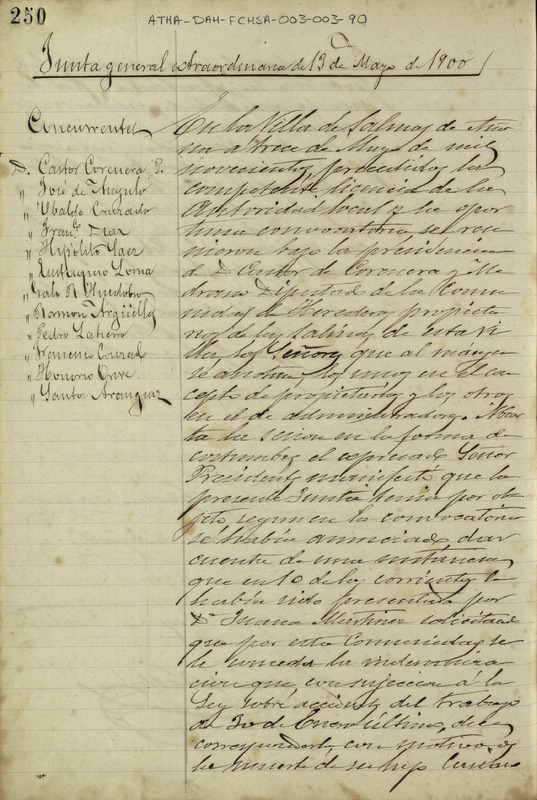 250
ATHA-DAH-FCHSA-003-003-90
Junta general extraordinaria de 13 de Mayo de 1900
Concurrentes
D. Castor Corcuera P.
" José de Angulo
" Ubaldo
" Franco. Diaz
" Hipólito Saez
" Eustaquio Loma
" Galo R
" Ramon Argüelles
" Pedro
" Honorio
" Santos Aranguiz
En la Villa de Salinas de Aña
na a trece de Mayo de mil
novecientos, precedidas la
competente licencia de la
Autoridad local y la opor
tuna convocatoria, se reu
nieron bajo la presidencia
de D. Castor de Corcuera y Me
drano Diputado de la Comu
nidad de Herederos propieta
rios de las Salinas de esta Vi
lla, los Señores que al margen
se anotan, los unos en el con
cepto de propietarios y los otros
en el de administradores. Abier
ta la sesion en la forma de
costumbre, el expresado Señor
Presidente manifestó que la
presente Junta tenia por ob
jeto segun en la convocatoria
se habia anunciado, dar
cuenta de una instancia
que en 10 de los corrientes le
habia sido presentada por
Da. Juana Martinez solicitando
que por esta Comunidad se
le conceda la indemniza
cion que, con sujeccion á la
Ley sobre accidentes del trabajo
de 30 de Enero último, debe
corresponderle con motivo de
la muerte de su hijo